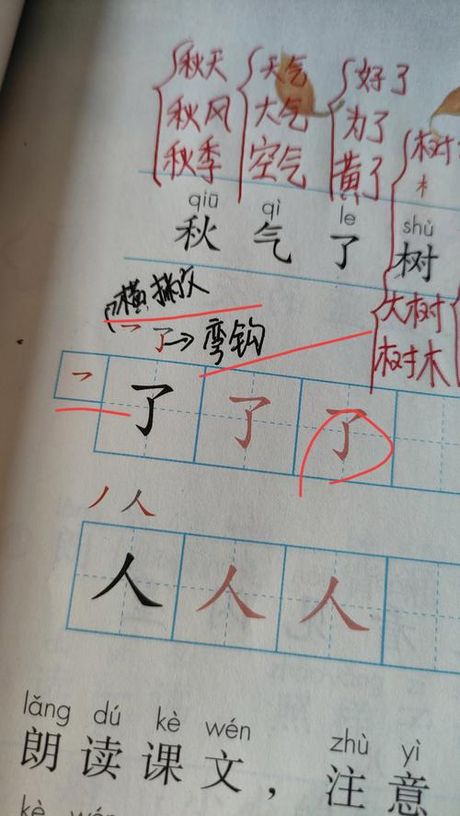 秋天 天气 好了
秋风 大气 为了 树
秋季 空气 黄了
qiū qì le shù
秋 气 了 树
横撇 大树
了→弯钩 树木
了 了 了
人
人 人 人
lǎng dú kè wén zhù yì
朗读课文，注意
kè wén